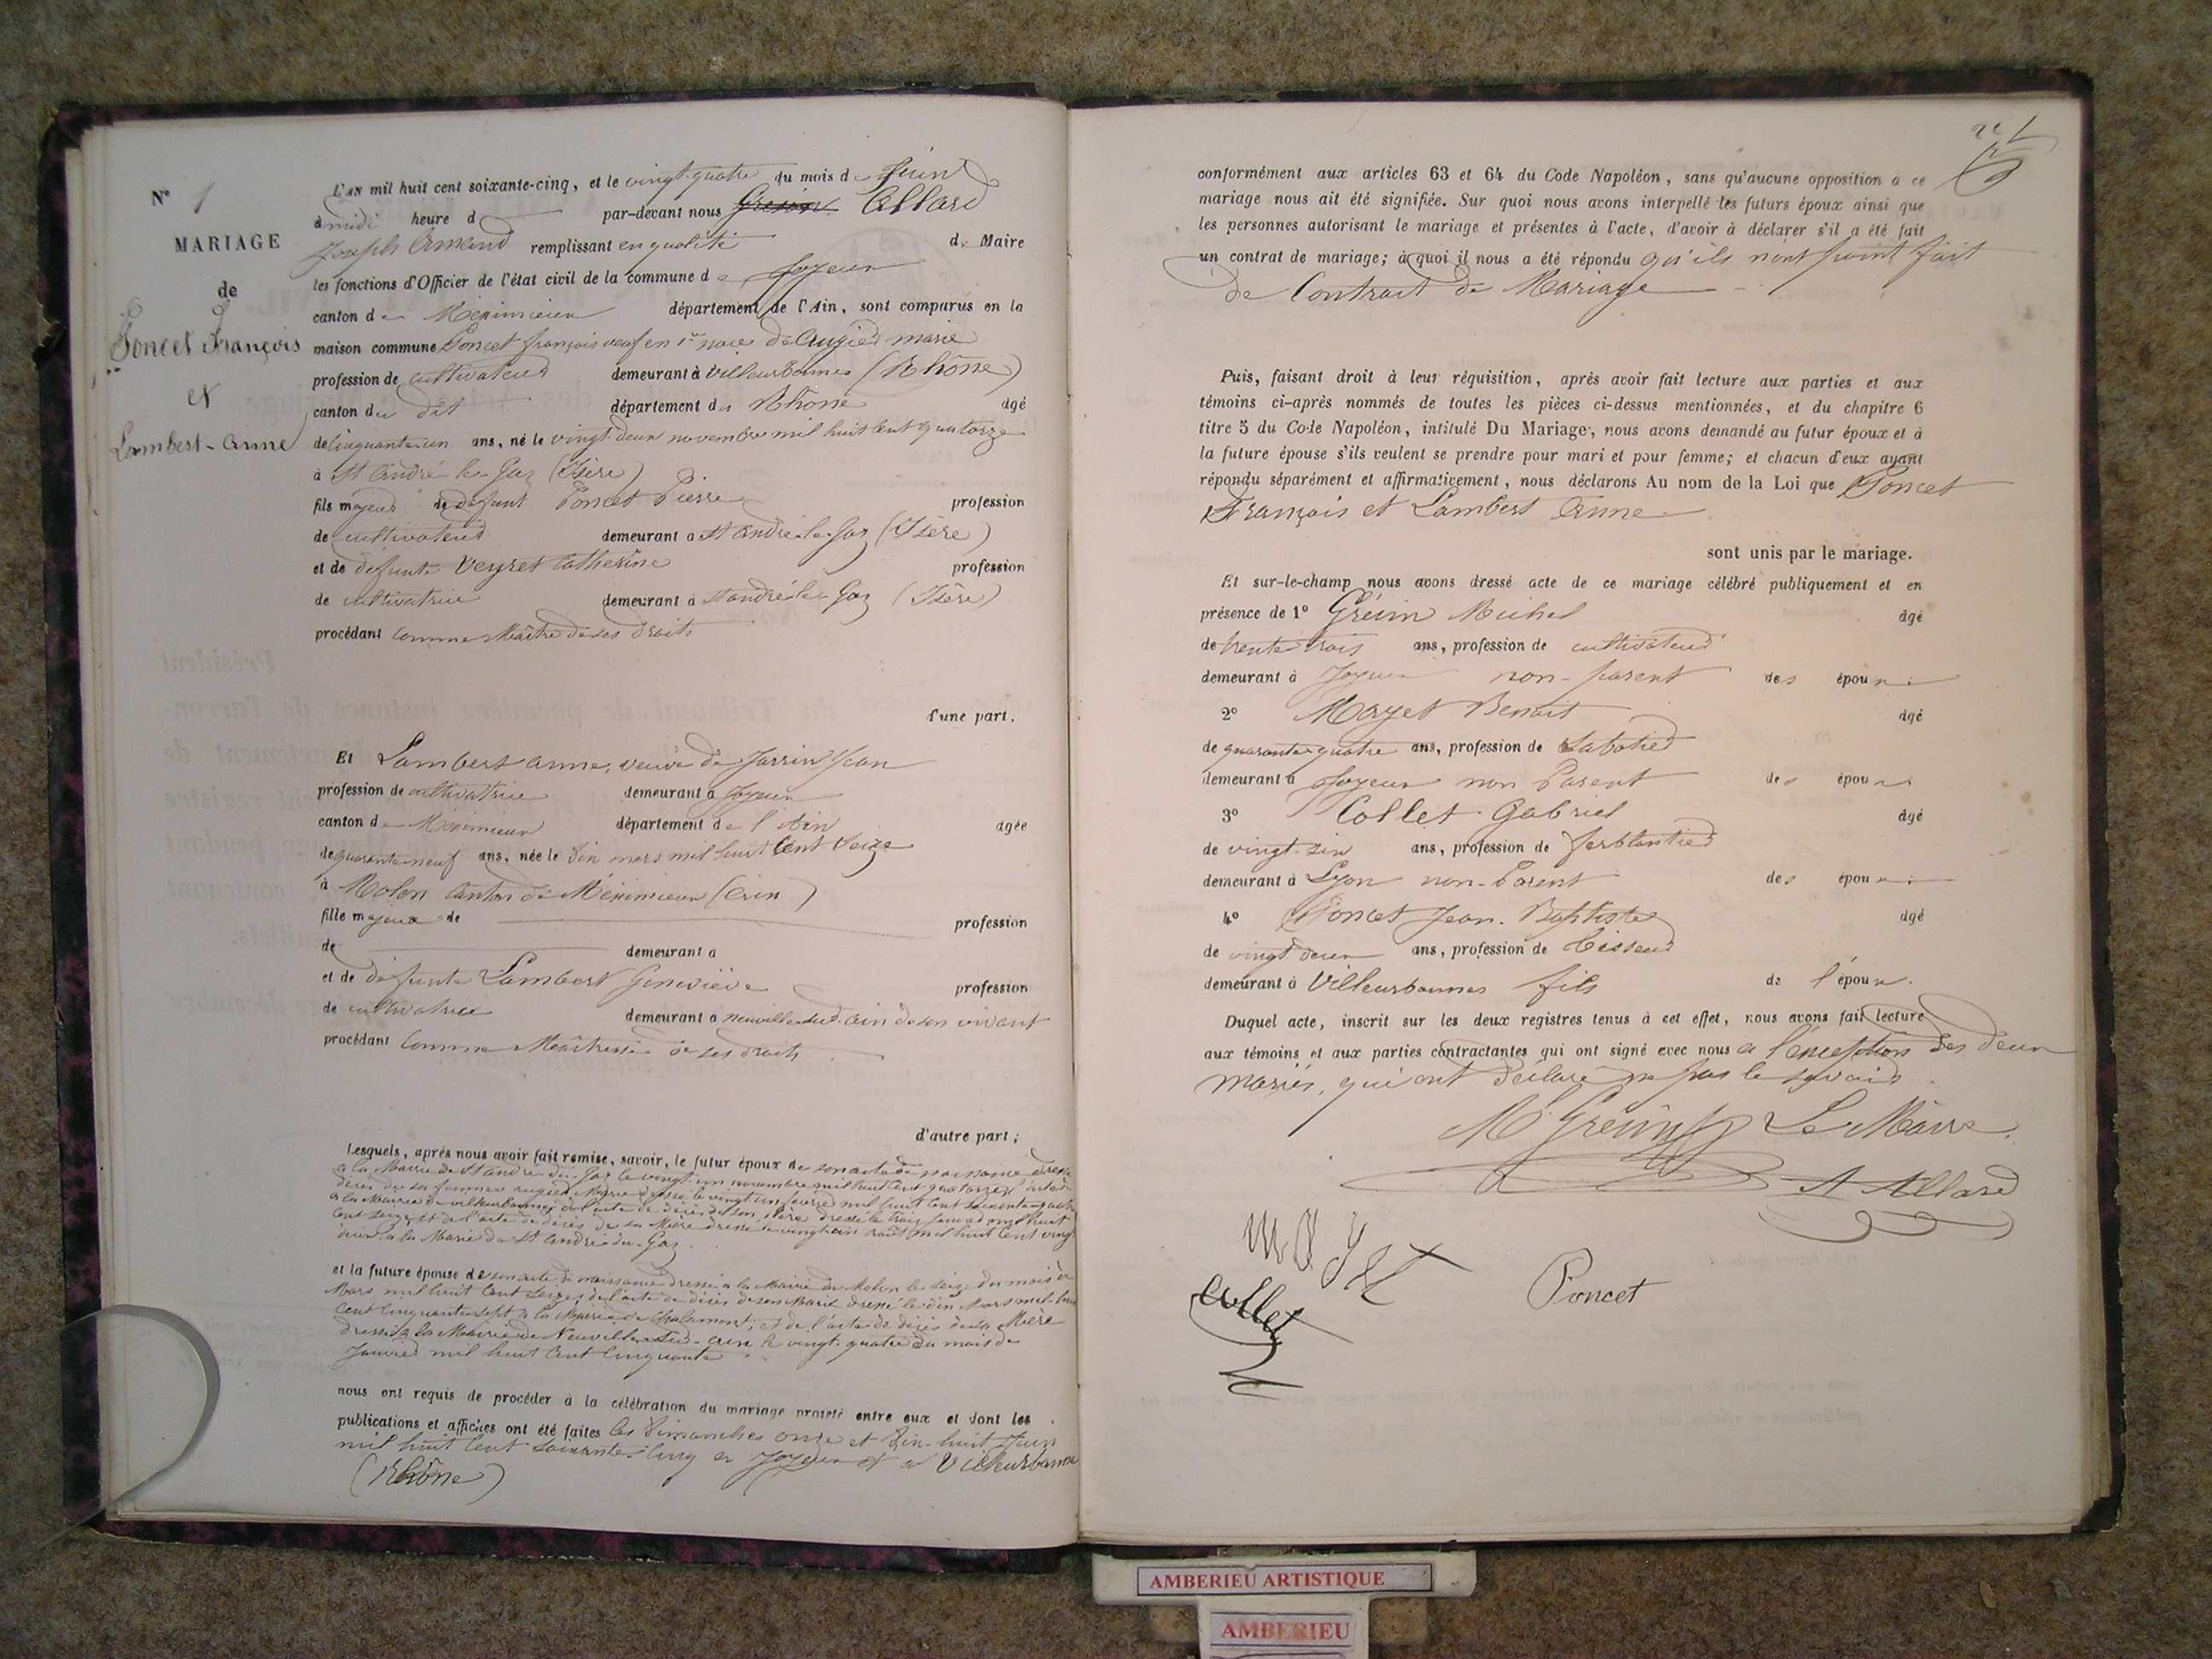 N° 1
MARIAGE
de
Poncet François
et
Lambert-Anne
L'AN mil huit cent soixante-cinq, et le vingt-quatre du mois de Juin
à midi heure d par-devant nous Allard
Joseph Armand remplissant en qualité de Maire
les fonctions d'Officier de l'état civil de la commune de Joyeux
canton de Meximieux département de l'Ain, sont comparus en la
maison commune Poncet françois veuf en 1re noce de Augier marie
profession de cultivateur demeurant à Villeurbannes (Rhône)
canton du dit département du Rhône âgé
de cinquante un ans, né le vingt deux novembre mil huit cent quatorze
à St André le Gaz (Isère)
fils majeur de défunt Poncet Pierre profession
de cultivateur demeurant à St andré-le-Gaz (Isère)
et de défunte Veyret Catherine profession
de cultivatrice demeurant à St andré le Gaz (Isère)
procédant comme Maître de ses droits
d'une part.
Et Lambert anne, veuve de Jarrin Jean
profession de cultivatrice demeurant à Joyeux
canton de Meximieux département de l'Ain âgée
de quarante-neuf ans, née le dix mars mil huit Cent Seize
à Molon Canton de Méximieux (Ain)
fille majeure de profession
de demeurant à
et de défunte Lambert Geneviève profession
de cultivatrice demeurant à neuville-sud-ain de son vivant
procédant Comme Maîtresse de ses droits
d'autre part;
Lesquels, après nous avoir fait remise, savoir, le futur époux de son acte de naissance dressé
à la Mairie de St andré du Gaz le vingt-un novembre mil huit Cent quatorze,
décès de sa femme augier Marie dressé le vingt un mil huit Cent soixante-quatre
à la Mairie de villeurbannes, de l'acte de décès de son Père dressé le trois mil huit
Cent seize, et de l'acte de décès de sa Mère dressé le vingt six août mil huit Cent vingt
deux à la Mairie de St andré-du-Gaz.
et la future épouse de son acte de naissance dressé à la Mairie de Molon le seize du mois de
Mars mil huit Cent seize, de l'acte de décès de son Mari dressé le dix Mars mil-huit
Cent Cinquante sept à la Mairie de Chalamont, et de l'acte de décès de sa Mère
dressé à la Mairie de Neuville-sud-ain le vingt-quatre du mois de
Janvier mil huit Cent Cinquante.
nous ont requis de procéder à la célébration du mariage projeté entre eux et dont les
publications et affiches ont été faites les Dimanches onze et dix-huit Juin
mil huit Cent soixante-Cinq à Joyeux et à Villeurbanne
(Rhône)
conformément aux articles 63 et 64 du Code Napoléon, sans qu'aucune opposition à ce
mariage nous ait été signifiée. Sur quoi nous avons interpellé les futurs époux ainsi que
les personnes autorisant le mariage et présentes à l'acte, d'avoir à déclarer s'il a été fait
un contrat de mariage; à quoi il nous a été répondu qu'ils n'ont point fait
de Contrat de Mariage
Puis, faisant droit à leur réquisition, après avoir fait lecture aux parties et aux
témoins ci-après nommés de toutes les pièces ci-dessus mentionnées, et du chapitre 6
titre 5 du Code Napoléon, intitulé Du Mariage, nous avons demandé au futur époux et à
la future épouse s'ils veulent se prendre pour mari et pour femme; et chacun d'eux ayant
répondu séparément et affirmativement, nous déclarons Au nom de la Loi que Poncet
François et Lambert Anne
sont unis par le mariage.
Et sur-le-champ nous avons dressé acte de ce mariage célébré publiquement et en
présence de 1° Grévin Michel âgé
de trente trois ans, profession de cultivateur
demeurant à Joyeux non-parent des époux.
2° Mayet Benoit âgé
de quarante-quatre ans, profession de Sabotier
demeurant à Joyeux non Parent des époux
3° Collet Gabriel âgé
de vingt-six ans, profession de ferblantier
demeurant à Lyon non-Parent des époux.
4° Poncet Jean-Baptiste âgé
de vingt deux ans, profession de Tisseur
demeurant à Villeurbannes fils de l'époux.
Duquel acte, inscrit sur les deux registres tenus à cet effet, nous avons fait lecture
aux témoins et aux parties contractantes qui ont signé avec nous à l'exception des deux
mariés, qui ont déclaré ne pas le savoir
M Grévin Le Maire
A Allard
mayet
Collet
Poncet
AMBERIEU ARTISTIQUE
AMBERIEU